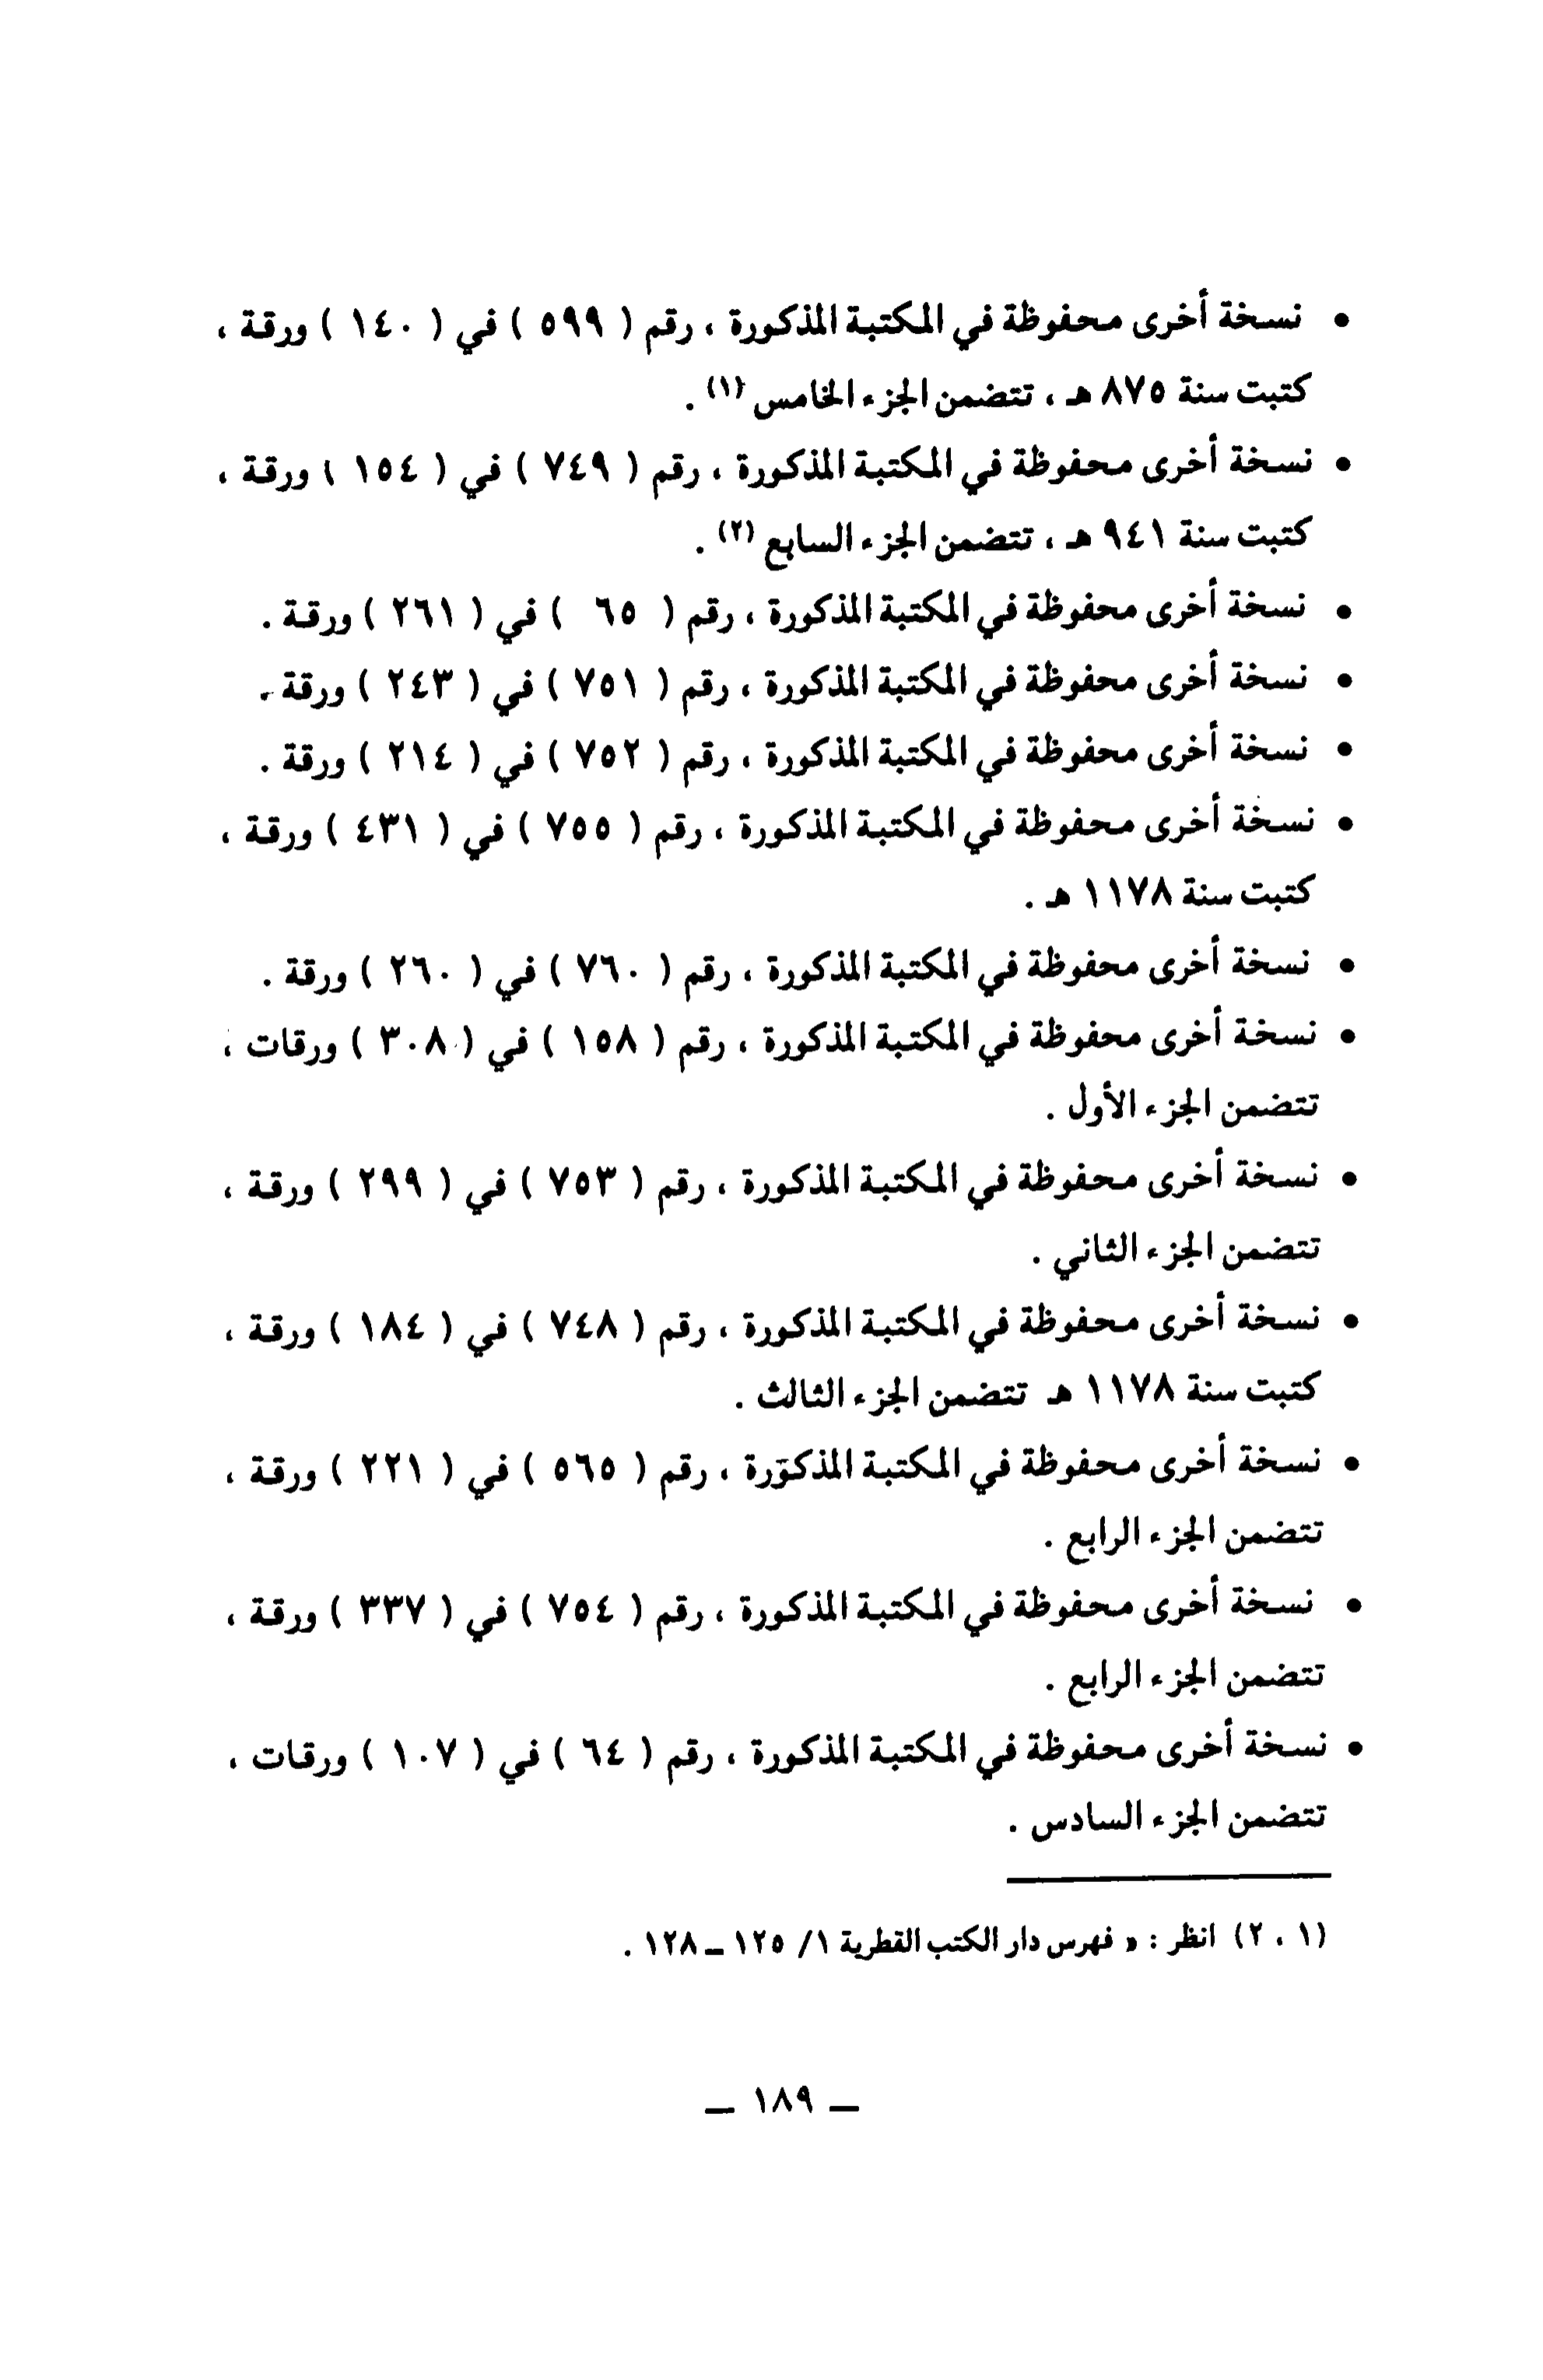 • نسخة أخرى محفوظة في المكتبة المذكورة ، رقم ( ٥٩٩ ) في ( ١٤٠ ) ورقة ،
كتبت سنة ٨٧٥ هـ ، تتضمن الجزء الخامس (١) .
• نسخة أخرى محفوظة في المكتبة المذكورة ، رقم ( ٧٤٩ ) في ( ١٥٤ ) ورقة ،
كتبت سنة ٩٤١ هـ ، تتضمن الجزء السابع (٢) .
• نسخة أخرى محفوظة في المكتبة المذكورة ، رقم ( ٦٥ ) في ( ٢٦١ ) ورقة .
• نسخة أخرى محفوظة في المكتبة المذكورة ، رقم ( ٧٥١ ) في ( ٢٤٣ ) ورقة .
• نسخة أخرى محفوظة في المكتبة المذكورة ، رقم ( ٧٥٢ ) في ( ٢١٤ ) ورقة .
• نسخة أخرى محفوظة في المكتبة المذكورة ، رقم ( ٧٥٥ ) في ( ٤٣١ ) ورقة ،
كتبت سنة ١١٧٨ هـ .
• نسخة أخرى محفوظة في المكتبة المذكورة ، رقم ( ٧٦٠ ) في ( ٢٦٠ ) ورقة .
• نسخة أخرى محفوظة في المكتبة المذكورة ، رقم ( ١٥٨ ) في ( ٣٠٨ ) ورقات ،
تتضمن الجزء الأول .
• نسخة أخرى محفوظة في المكتبة المذكورة ، رقم ( ٧٥٣ ) في ( ٢٩٩ ) ورقة ،
تتضمن الجزء الثاني .
• نسخة أخرى محفوظة في المكتبة المذكورة ، رقم ( ٧٤٨ ) في ( ١٨٤ ) ورقة ،
كتبت سنة ١١٧٨ هـ تتضمن الجزء الثالث .
• نسخة أخرى محفوظة في المكتبة المذكورة ، رقم ( ٥٦٥ ) في ( ٢٢١ ) ورقة ،
تتضمن الجزء الرابع .
• نسخة أخرى محفوظة في المكتبة المذكورة ، رقم ( ٧٥٤ ) في ( ٣٣٧ ) ورقة ،
تتضمن الجزء الرابع .
• نسخة أخرى محفوظة في المكتبة المذكورة ، رقم ( ٦٤ ) في ( ١٠٧ ) ورقات ،
تتضمن الجزء السادس .
(١ ، ٢) انظر : « فهرس دار الكتب القطرية ١/ ١٢٥ ــ ١٢٨ .
ــ ١٨٩ ــ